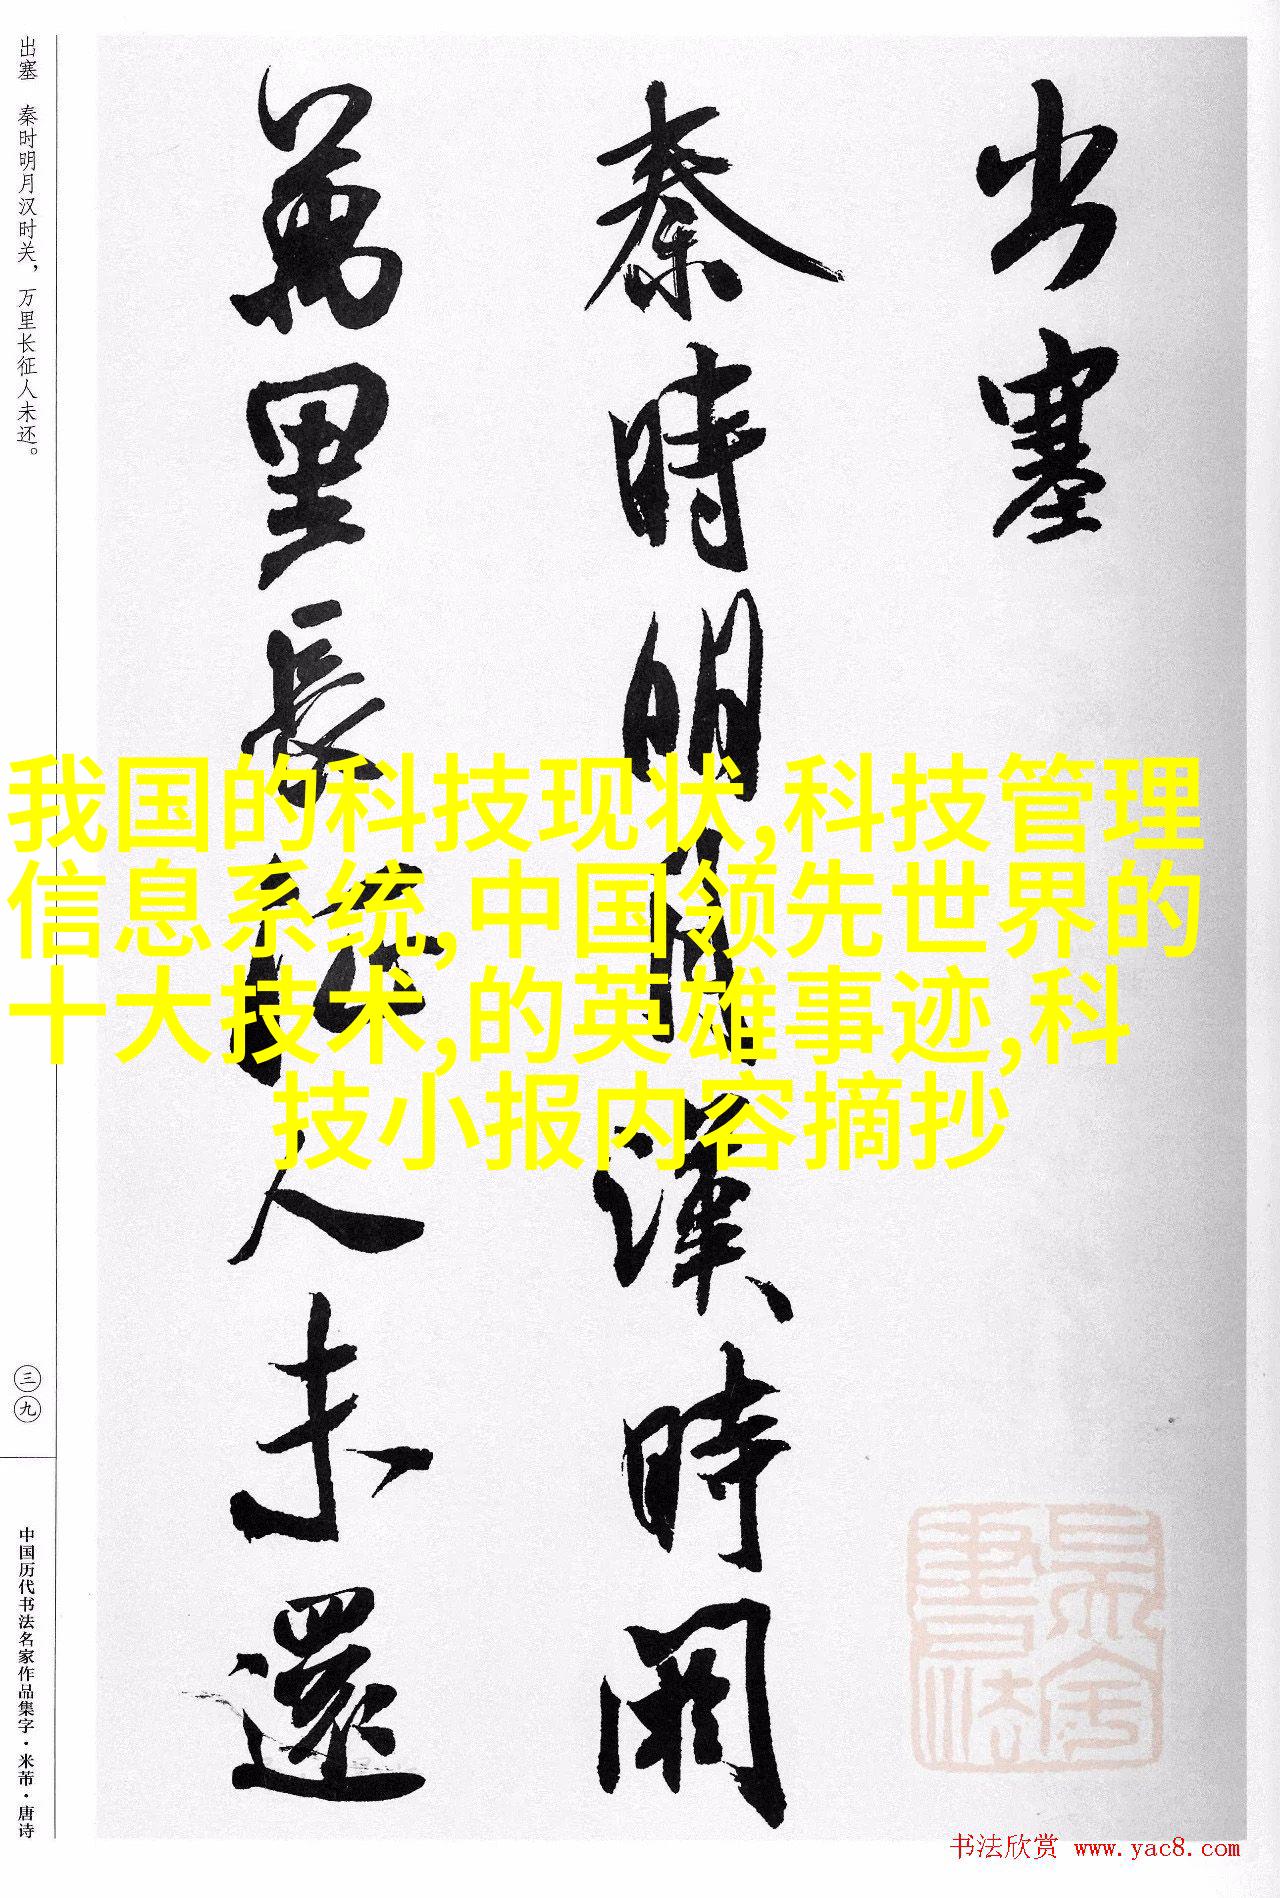 出塞
秦時明月漢時関
萬里長征人未還
出塞 秦时明月汉时关，万里长征人未还。
三九
中国历代书法名家作品集字·米芾·唐诗
我国的科技现状,科技管理
信息系统,中国领先世界的
十大技术,的英雄事迹,科
技小报内容摘抄
书法欣赏 www.yac8.com